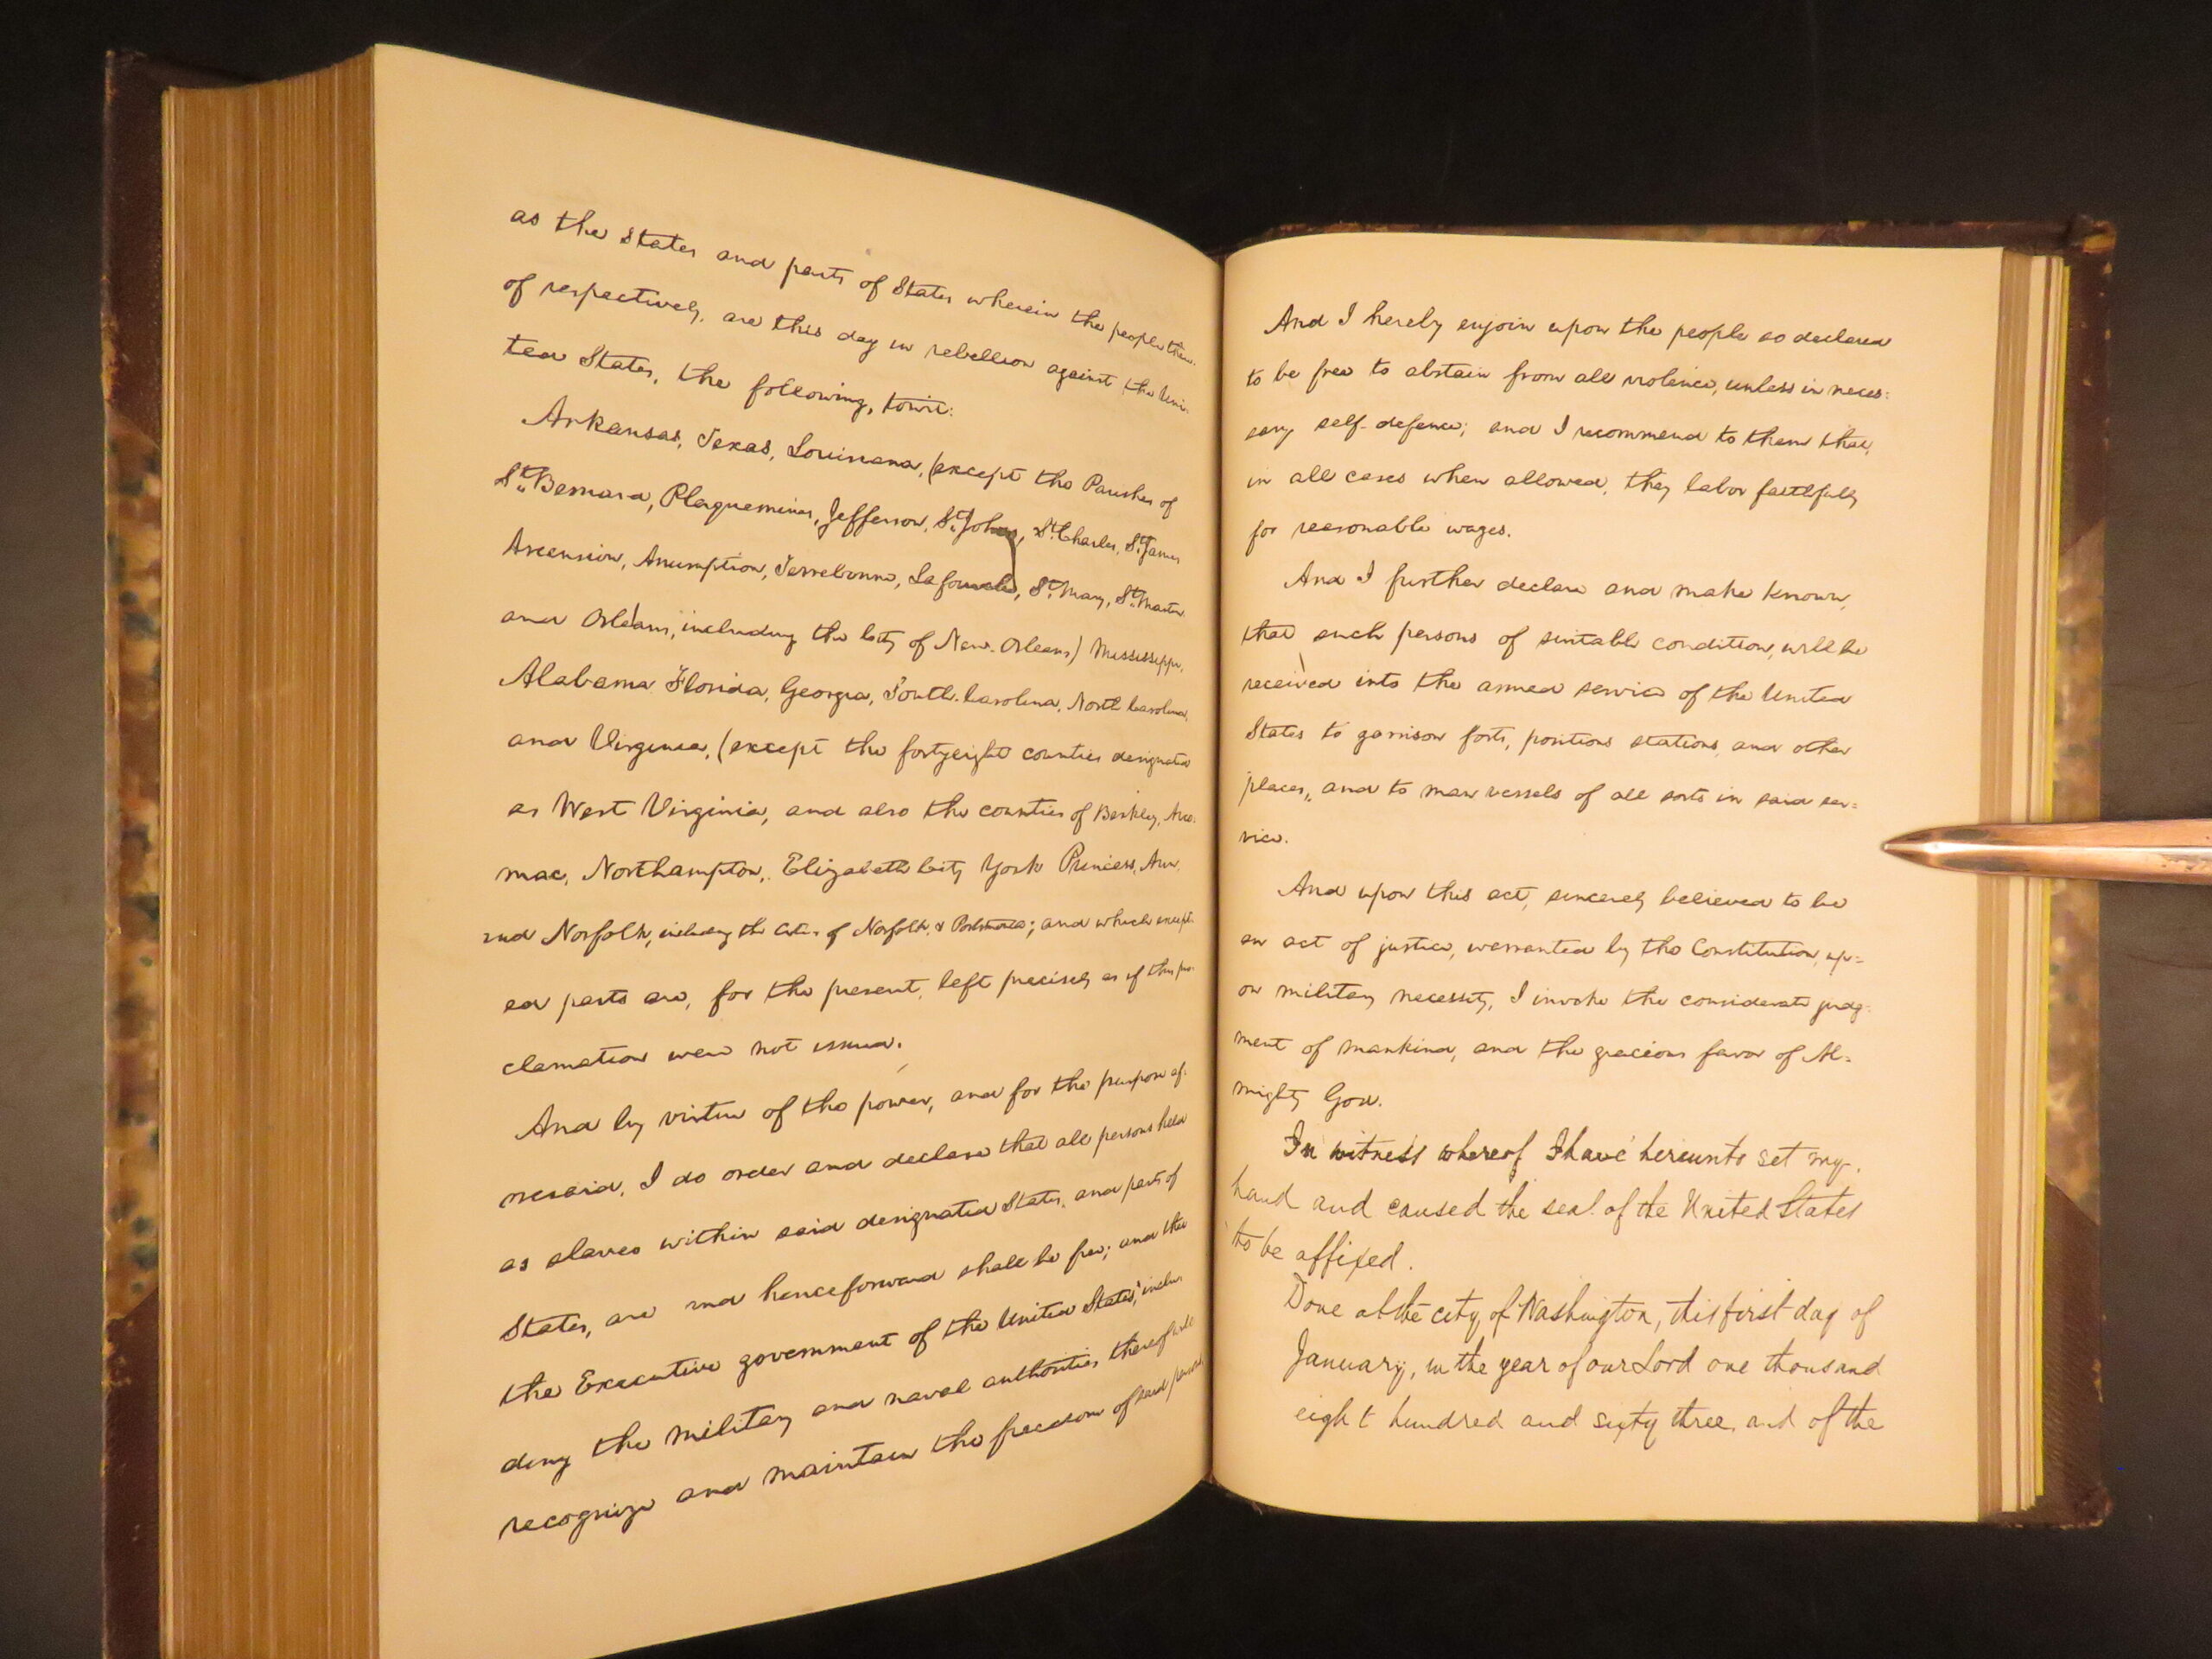 as the States and parts of States wherein the people there-
of respectively, are this day in rebellion against the Uni-
ted States, the following, towit:
Arkansas, Texas, Louisiana, (except the Parishes of
St. Bernard, Plaquemines, Jefferson, St. John, St. Charles, St. James
Ascension, Assumption, Terrebonne, Lafourche, St. Mary, St. Martin
and Orleans, including the City of New-Orleans) Mississippi,
Alabama Florida, Georgia, South-Carolina, North Carolina,
and Virginia, (except the fortyeight counties designated
as West Virginia, and also the counties of Berkley, Acco-
mac, Northampton, Elizabeth City York Princess, Ann,
and Norfolk, including the cities of Norfolk & Portsmouth; and which except-
ed parts are, for the present, left precisely as if this pro-
clamation were not issued.
And by virtue of the power, and for the purpose af-
oresaid, I do order and declare that all persons held
as slaves within said designated States, and parts of
States, are and henceforward shall be free; and that
the Executive government of the United States, inclu-
ding the military and naval authorities thereof will
recognize and maintain the freedom of said persons
And I hereby enjoin upon the people so declared
to be free to abstain from all violence, unless in neces=
sary self-defence; and I recommend to them that,
in all cases when allowed, they labor faithfully
for reasonable wages.
And I further declare and make known,
that such persons of suitable condition, will be
received into the armed service of the United
States to garrison forts, positions stations, and other
places, and to man vessels of all sorts in said ser=
vice.
And upon this act, sincerely believed to be
an act of justice, warranted by the Constitution, up=
on military necessity, I invoke the considerate judg-
ment of mankind, and the gracious favor of Al=
mighty God.
In witness whereof I have hereunto set my
hand and caused the seal of the United States
to be affixed.
Done at the city of Washington, this first day of
January, in the year of our Lord one thousand
eight hundred and sixty three, and of the